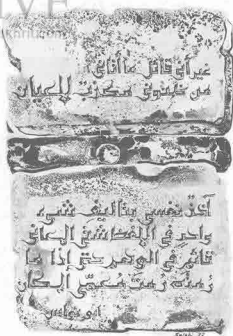 غير أني قائل ما أتاني
من ظنوني مكذب للعيان
آخذ نفسي بتأليف شيء
واحد في اللفظ شتى المعاني
قائم في الوهم حتى إذا ما
رمته رمت معمى المكان
ابو نواس